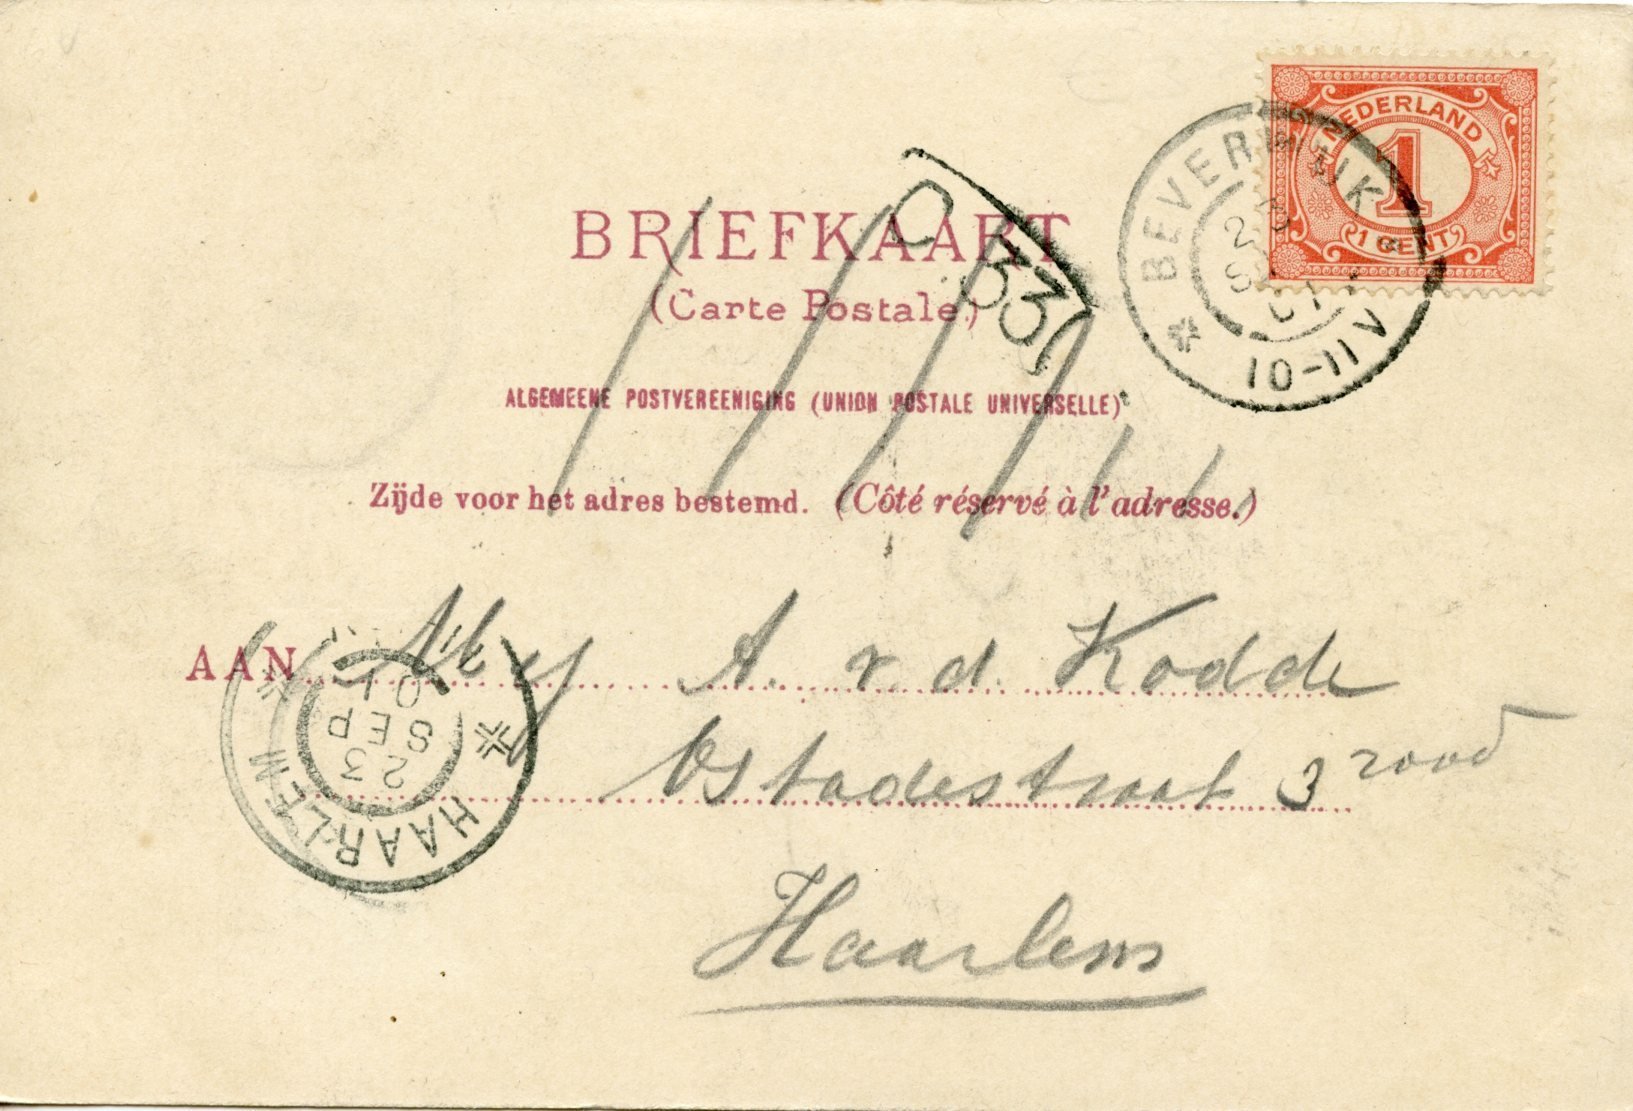 NEDERLAND
1
1 CENT
BEVERWIJK
23
10-11 V
BRIEFKAART
(Carte Postale.)
33
ALGEMEENE POSTVEREENIGING (UNION POSTALE UNIVERSELLE)
Zijde voor het adres bestemd. (Côté réservé à l'adresse.)
AAN
A. v. d. Kodde
Ostadestraat 3 rood
Haarlem
HAARLEM
23
SEP
01